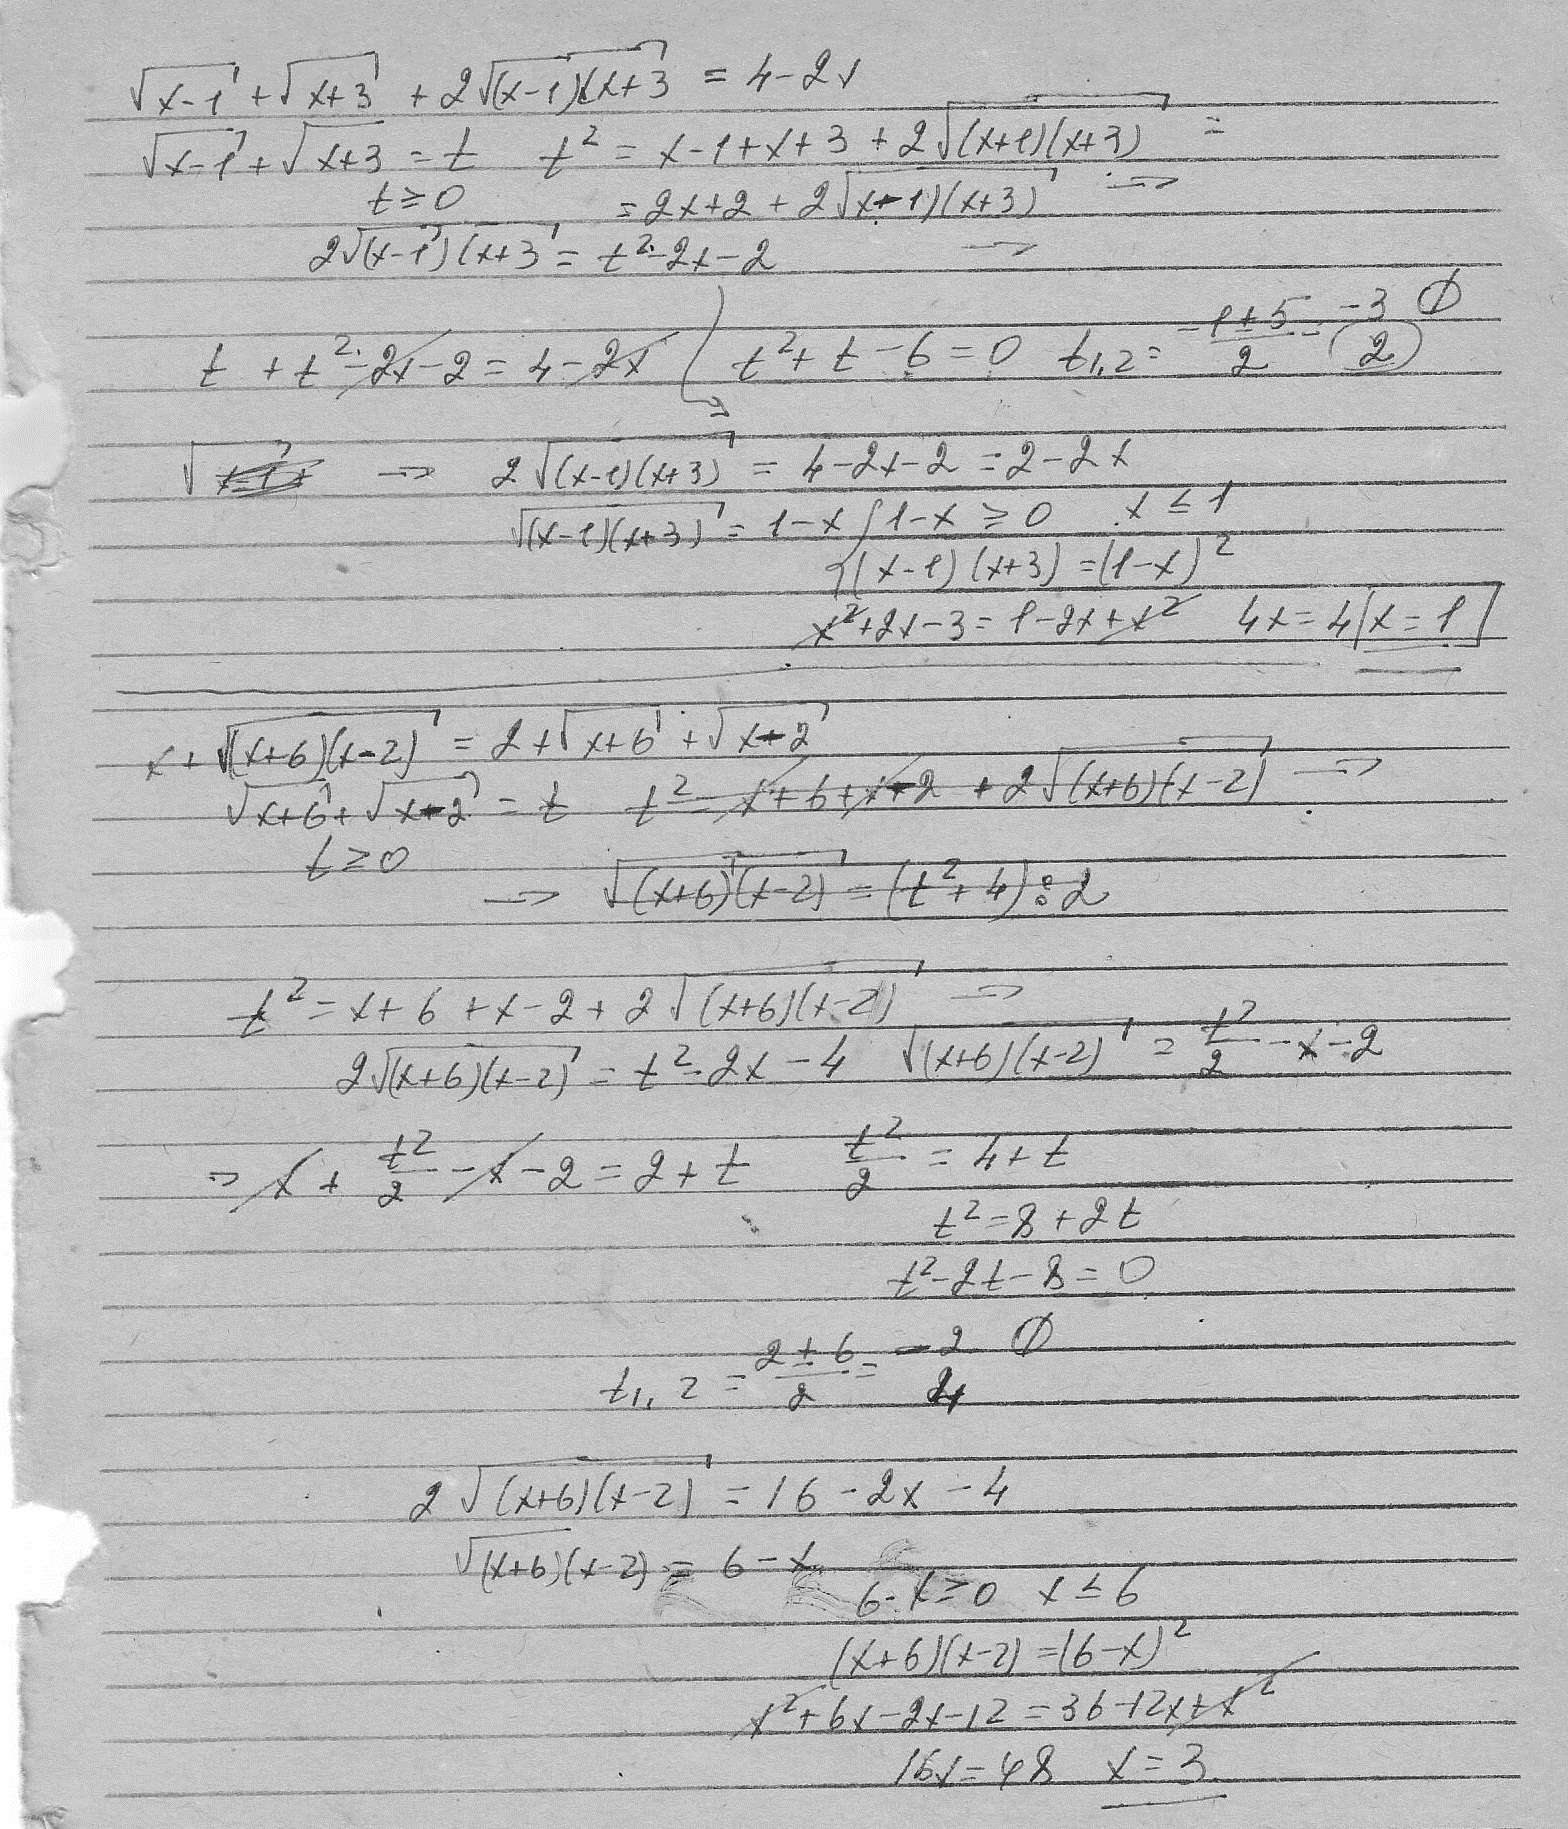 √(x-1) + √(x+3) + 2√((x-1)(x+3)) = 4-2x
√(x-1) + √(x+3) = t t² = x-1+x+3 + 2√((x+1)(x+3)) =
t ≥ 0 = 2x+2 + 2√((x-1)(x+3)) =>
2√((x-1)(x+3)) = t²-2x-2 =>
t + t²-2x-2 = 4-2x t²+t-6=0 t₁,₂ = (-1±5)/2 = -3 ∅ 2
=> 2√((x-1)(x+3)) = 4-2x-2 = 2-2x
√((x-1)(x+3)) = 1-x { 1-x ≥ 0 x ≤ 1
(x-1)(x+3) = (1-x)²
x²+2x-3 = 1-2x+x² 4x=4 x=1
x + √((x+6)(x-2)) = 2 + √(x+6) + √(x-2)
√(x+6) + √(x-2) = t t² = x+6+x-2 + 2√((x+6)(x-2)) =>
t ≥ 0
=> √((x+6)(x-2)) = (t²+4):2
t² = x+6+x-2+2√((x+6)(x-2)) =>
2√((x+6)(x-2)) = t²-2x-4 √((x+6)(x-2)) = t²/2 -x-2
=> x + t²/2 -x-2 = 2+t t²/2 = 4+t
t² = 8+2t
t²-2t-8=0
t₁,₂ = (2±6)/2 = -2 ∅ 4
2√((x+6)(x-2)) = 16-2x-4
√((x+6)(x-2)) = 6-x
6-x ≥ 0 x ≤ 6
(x+6)(x-2) = (6-x)²
x²+6x-2x-12 = 36-12x+x²
16x=48 x=3